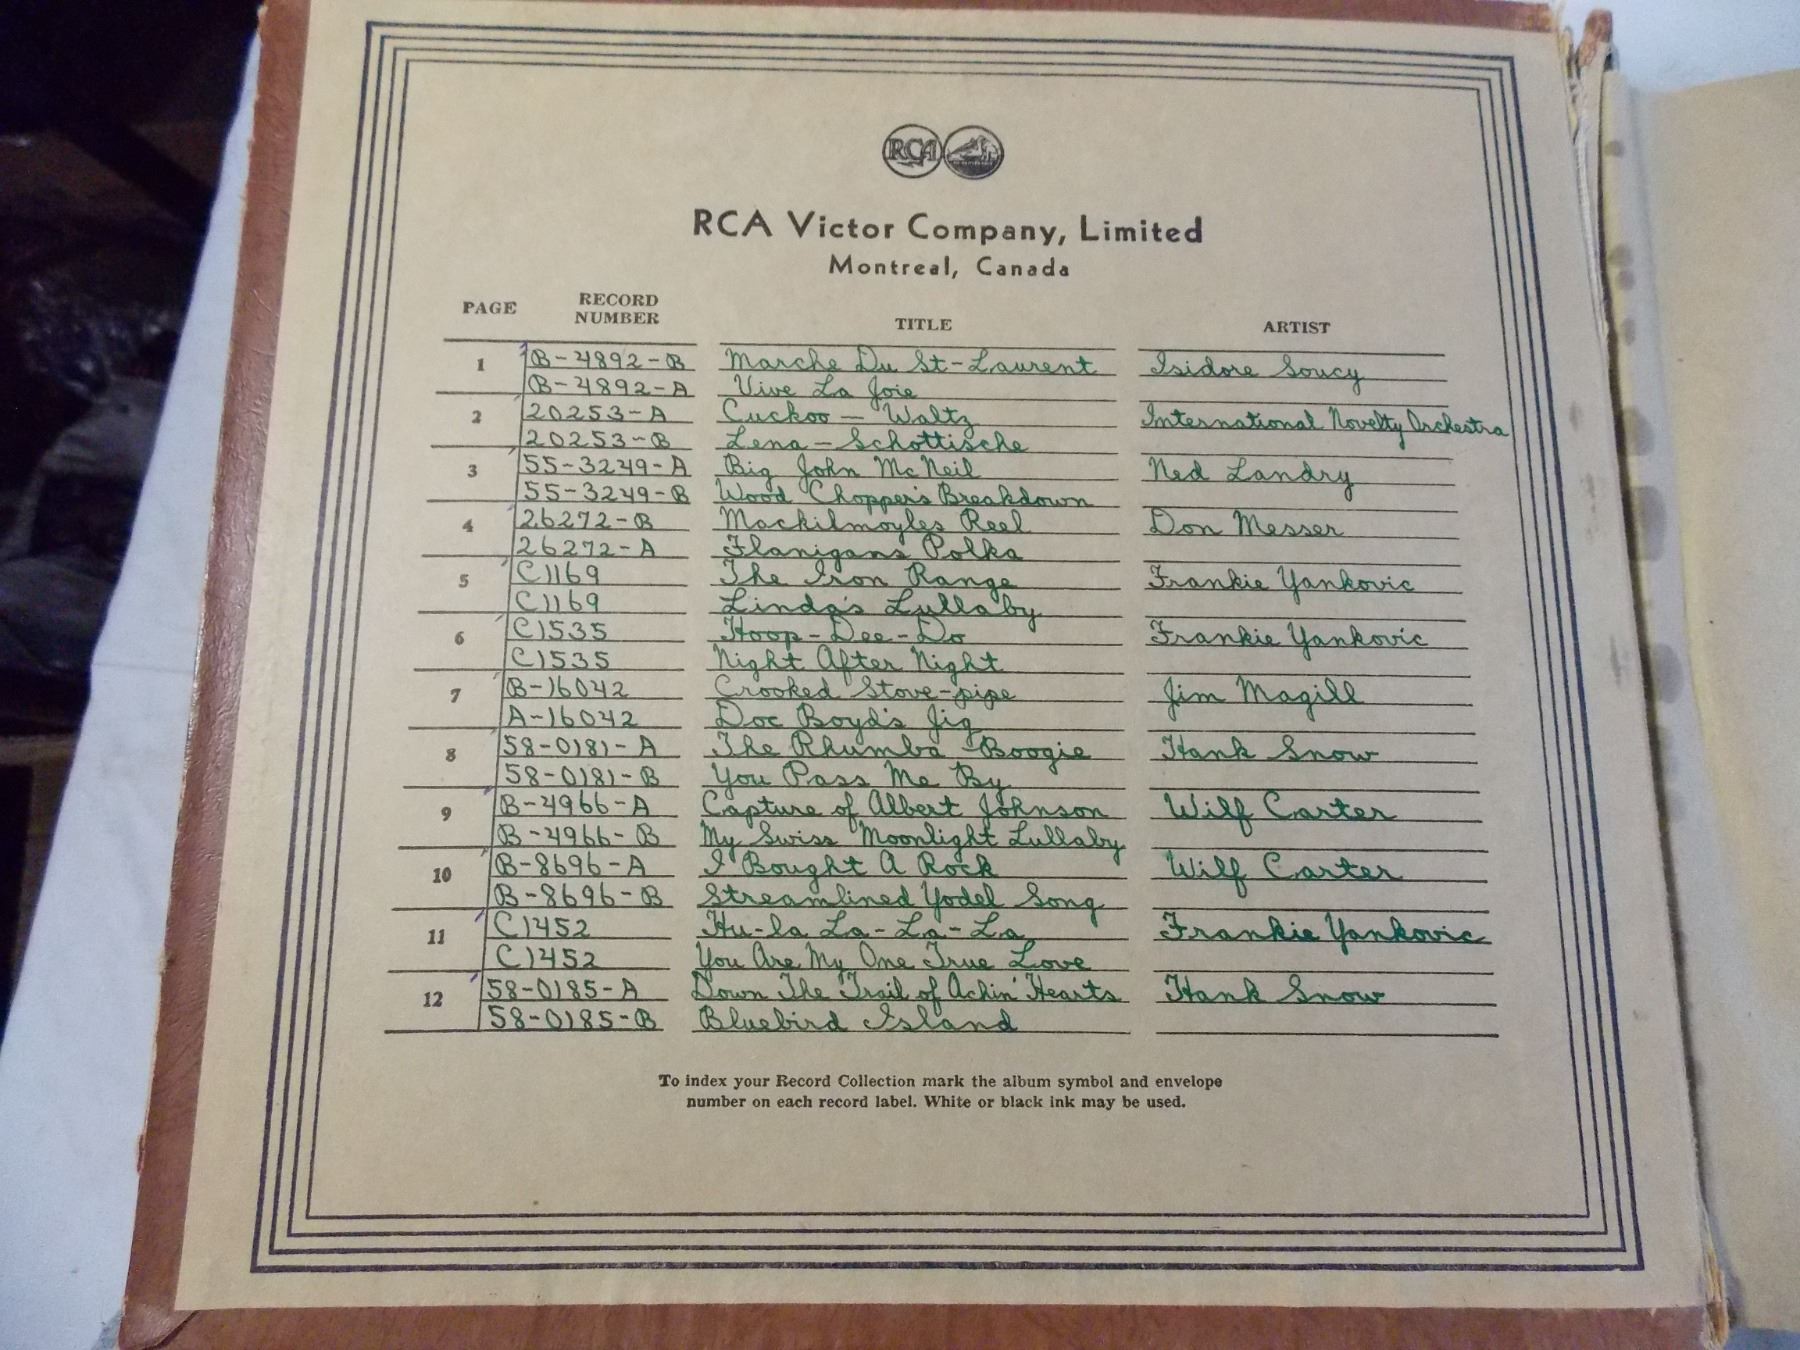 RCA
RCA Victor Company, Limited
Montreal, Canada
PAGE RECORD NUMBER TITLE ARTIST
1 B-4892-B Marche Du St-Laurent Isidore Soucy
B-4892-A Vive La Joie
2 20253-A Cuckoo - Waltz International Novelty Orchestra
20253-B Lena - Schottische
3 55-3249-A Big John McNeil Ned Landry
55-3249-B Wood Chopper's Breakdown
4 26272-B Mackilmoyles Reel Don Messer
26272-A Flanigans Polka
5 C1169 The Iron Range Frankie Yankovic
C1169 Linda's Lullaby
6 C1535 Hoop-Dee-Do Frankie Yankovic
C1535 Night After Night
7 B-16042 Crooked Stove-pipe Jim Magill
A-16042 Doc Boyd's Jig
8 58-0181-A The Rhumba Boogie Hank Snow
58-0181-B You Pass Me By
9 B-4966-A Capture of Albert Johnson Wilf Carter
B-4966-B My Swiss Moonlight Lullaby
10 B-8696-A I Bought A Rock Wilf Carter
B-8696-B Streamlined Yodel Song
11 C1452 Hu-la La-La-La Frankie Yankovic
C1452 You Are My One True Love
12 58-0185-A Down The Trail of Achin' Hearts Hank Snow
58-0185-B Bluebird Island
To index your Record Collection mark the album symbol and envelope
number on each record label. White or black ink may be used.